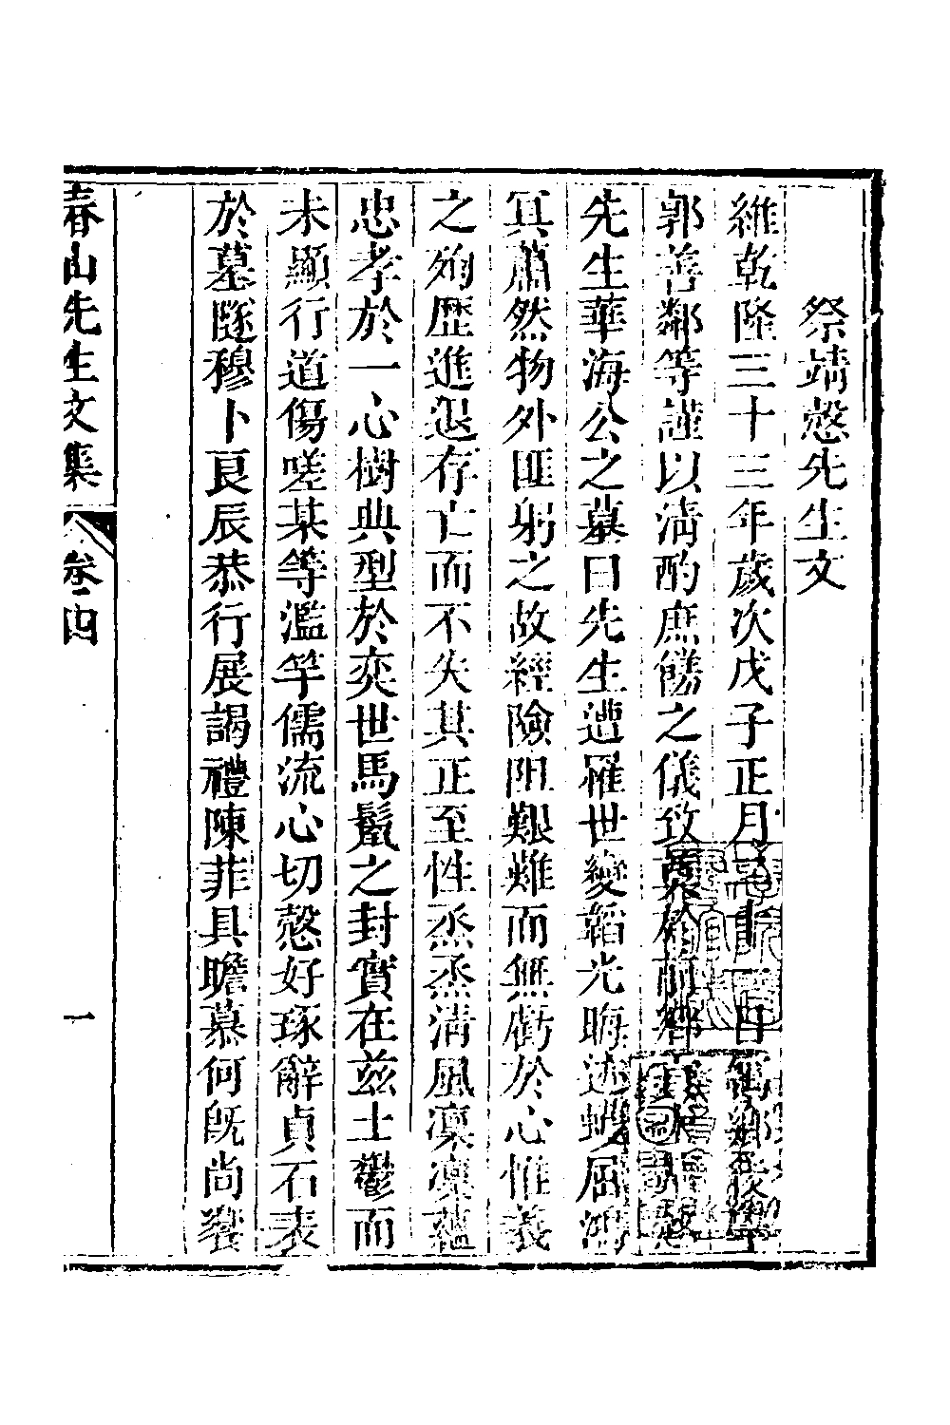 祭靖愨先生文
維乾隆三十三年歲次戊子正月十日鄉後學
郭善鄰等謹以清酌庶饈之儀致奠於前愨
先生華海公之墓曰先生遭罹世變韜光晦迹蠖屈鴻
冥蕭然物外匪躬之故經險阻艱難而無虧於心惟義
之殉歷進退存亡而不失其正至性烝烝清風凜凜蘊
忠孝於一心樹典型於奕世馬鬣之封實在茲土鬱而
未顯行道傷嗟某等濫竽儒流心切愨好琢辭貞石表
於墓隧穆卜良辰恭行展謁禮陳菲具瞻慕何旣尚饗
春山先生文集
卷四
一